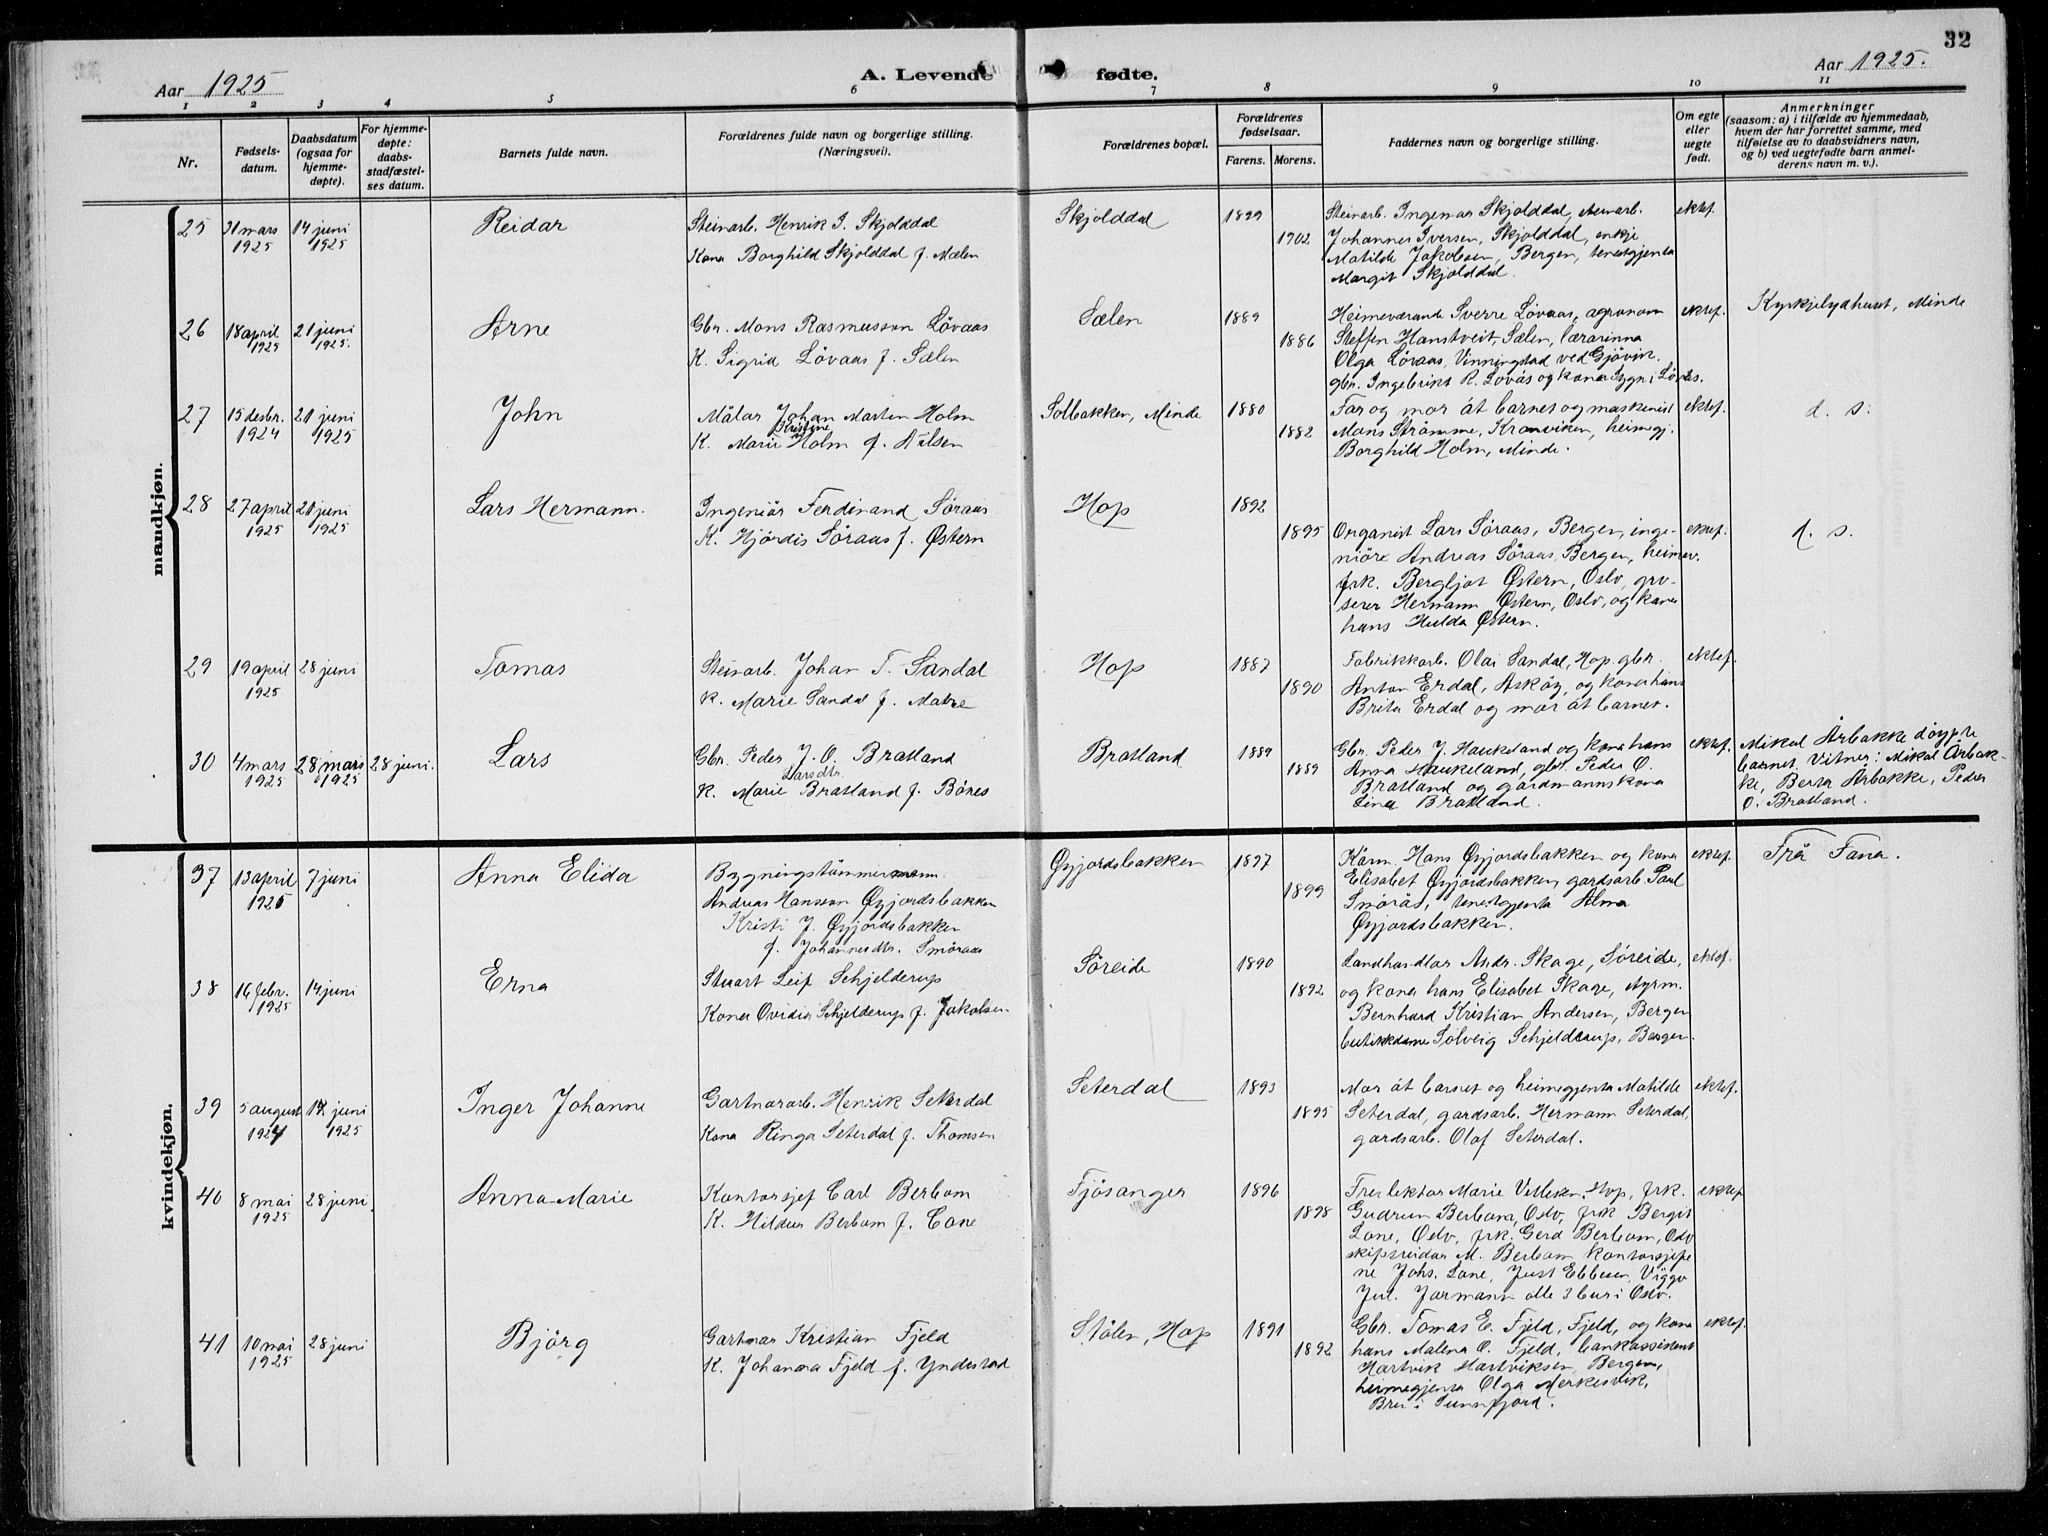 32
Aar 1925
A. Levende fødte.
Aar 1925.
1 2 3 4 5 6 7 8 9 10 11
Nr.
Fødsels-
datum.
Daabsdatum
(ogsaa for
hjemme-
døpte).
For hjemme-
døpte:
daabs-
stadfæstel-
ses datum.
Barnets fulde navn.
Forældrenes fulde navn og borgerlige stilling.
(Næringsvei).
Forældrenes bopæl.
Forældrenes
fødselsaar.
Farens. Morens.
Faddernes navn og borgerlige stilling.
Om egte
eller
uegte
født.
Anmerkninger
(saasom: a) i tilfælde av hjemmedaab,
hvem der har forrettet samme, med
tilføielse av to daabsvidners navn,
og b) ved uegtefødte barn anmel-
derens navn m. v.).
mandkjøn.
25 31 mars 1925 14 juni 1925 Reidar
Steinarb. Henrik I. Skjolddal
Kona Borghild Skjolddal f. Mælen
Skjolddal 1899 1902
Steinarb. Ingemar Skjolddal, steinarb.
Johannes Iversen, Skjolddal, enkje
Matilde Jakobsen, Bergen, tenestgjenta
Margit Skjolddal.
ektef.
26 18 april 1925 21 juni 1925. Arne
Gbr. Mons Rasmusson Lövaas
K. Sigrid Lövaas f. Sælen
Sælen 1889 1886
Heimeværande Sverre Lövaas, agronom
Steffen Hamstveit, Sælen, lærarinna
Olga Lövaas, Vinningstad ved Gjövik.
gbr. Ingebrikt R. Lövås og kona Sygni Lövås.
ektef.
Kyrkjelydhuset, Minde
27 15 desbr. 1924 21 juni 1925 John
Målar Johan Marten Holm
Kristine
K. Marie Holm f. Nilsen
Solbakken, Minde 1880 1882
Far og mor åt barnet og maskinist
Mons Strömme, Kronviken, heimegj.
Borghild Holm, Minde.
ektef.
d. s.
28 27 april 1925 21 juni 1925 Lars Hermann.
Ingeniör Ferdinand Söraas
K. Hjördis Söraas f. Østern
Hop 1892 1895
Organist Lars Söraas, Bergen, inge-
niöre Andreas Söraas, Bergen, heimev.
frk. Bergljot Østern, Oslo, gro-
serer Hermann Østern, Oslo, og kona
hans Hulda Østern.
ektef.
d. s.
29 19 april 1925 28 juni Tomas
Steinarb. Johan T. Sandal
K. Marie Sandal f. Matre
Hop 1887 1890
Fabrikkarb. Olai Sandal, Hop, gbr.
Anton Erdal, Asköy, og kona hans
Brita Erdal og mor åt barnet.
ektef.
30 4 mars 1925 28 mars 1925 28 juni. Lars
Gbr. Peder J. O. Bratland
Larsdtr.
K. Marie Bratland f. Bönes
Bratland 1889 1889
Gbr. Peder J. Haukeland og kona hans
Anna Haukeland, gbr. Peder O.
Bratland og gardmannskona
Lina Bratland.
ektef.
Mikal Årbakke döypte
barnet. Vitner: Mikal Årbak-
ke, Berta Årbakke, Peder
O. Bratland.
kvindekjøn.
37 13 april 1925 7 juni Anna Elida
Bygningstömmermann
Andreas Hansson Øyjordsbakken
Kristi J. Øyjordsbakken
f. Johannesdtr. Smöraas
Øyjordsbakken 1897 1899
Kårm. Hans Øyjordsbakken og kona
Elisabet Øyjordsbakken, gardsarb. Paul
Smörås, tenestgjenta Alma
Øyjordsbakken.
ektef.
Frå Fana.
38 16 febr. 1925 14 juni Erna
Stuart Leif Schjelderup
Kona Ovidia Schjelderup f. Jakobsen
Söreide 1890 1892
Landhandlar Andr. Skage, Söreide,
og kona hans Elisabet Skage, styrm.
Bernhard Kristian Andersen, Bergen
butikkdame Solveig Schjelderup, Bergen.
ektef.
39 5 august 1924 14 juni 1925 Inger Johanne
Gartnararb. Henrik Seterdal
Kona Ringa Seterdal f. Thomsen
Seterdal 1893 1895
Mor åt barnet og heimegjenta Matilde
Seterdal, gardsarb. Hermann Seterdal,
gardsarb. Olaf Seterdal.
ektef.
40 8 mai 1925 28 juni. Anna-Marie
Kontorsjef Carl Berbom
K. Hildur Berbom f. Lone
Fjösanger 1896 1898
Marie Hop, frk.
Gudrun Berbom, Oslo, frk Bergit
Lone, Oslo, frk. Gerd Berbom, Oslo
skipsreidar M. Berbom, kontorsjefe
ne Johs. Lone, Just Ebbesen, Viggo
Jul. Jarmann alle 3 bur i Oslo.
ektef
41 10 mai 1925 28 juni Björg
Gartnar Kristian Fjeld
K. Johanna Fjeld f. Yndestad
Stölen, Hop 1891 1892
Gbr. Tomas E. Fjeld, Fjeld, og kona
hans Malena O. Fjeld, bankassistent
Hartvik Hartviksen, Bergen,
heimegjenta Olga Merkesvik,
Bru i Sunnfjord.
ektef.